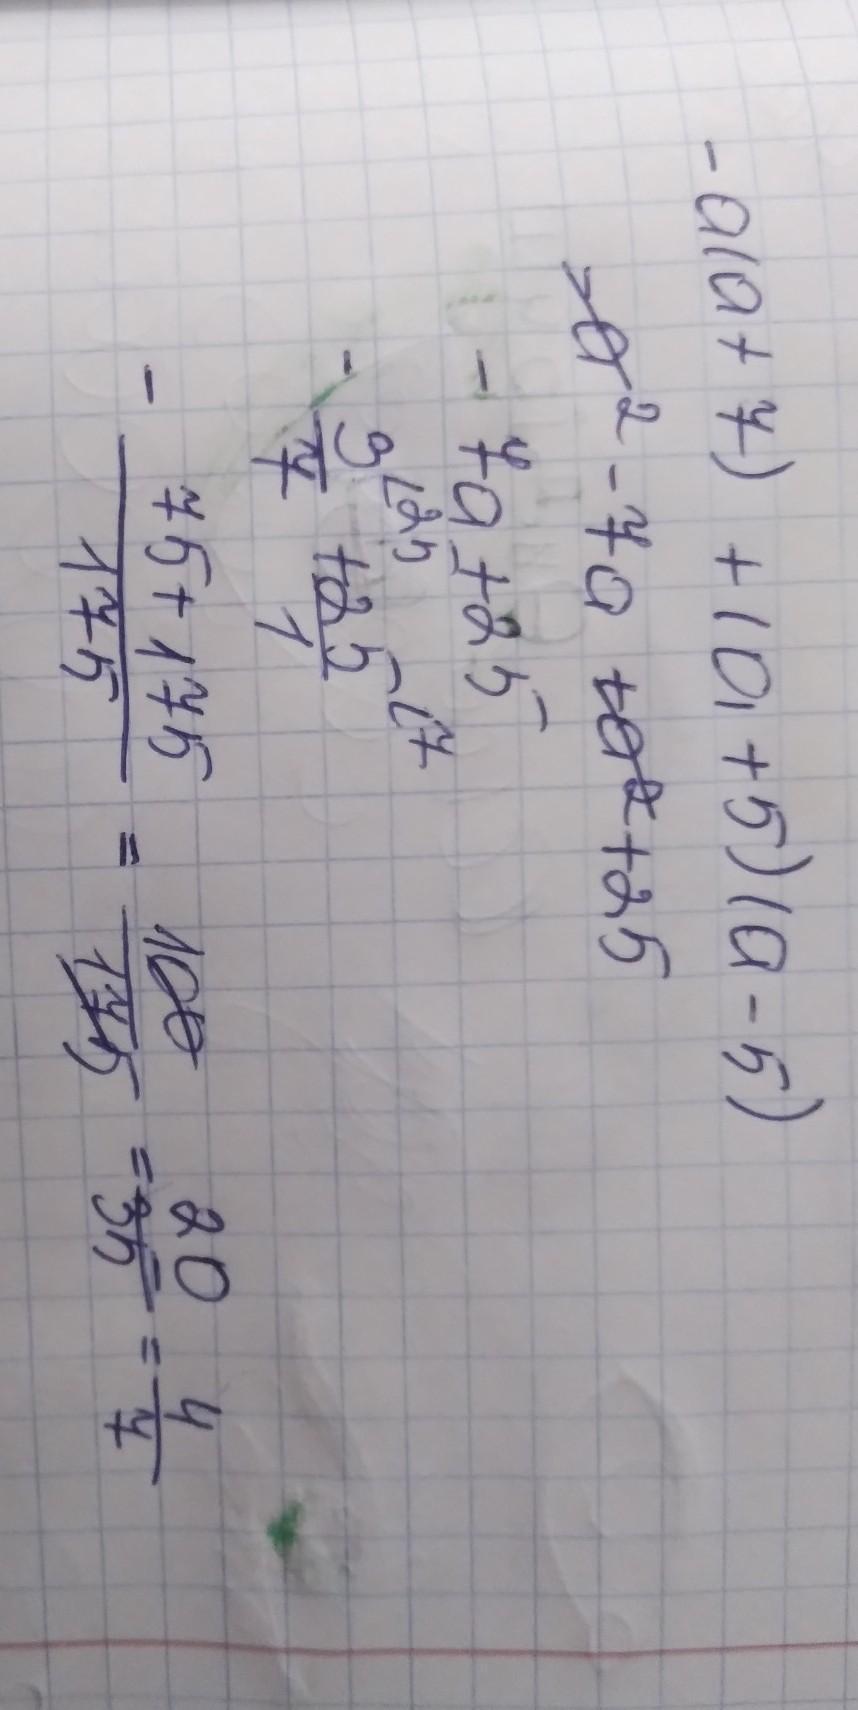 -a(a+7) + (a+5)(a-5)
-a² - 7a + a² + 25
- 7a + 25
- 3/7 (25 + 25/1 (7
- 75+175/175 = 100/175 = 20/35 = 4/7